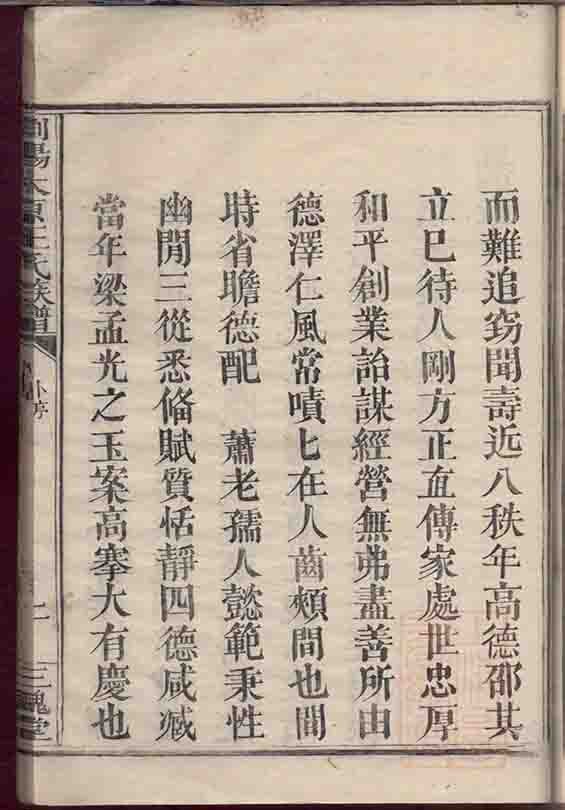 而難追窃聞壽近八秩年高德邵其
立巳待人剛方正直傳家處世忠厚
和平創業詒謀經營無弗盡善所由
德澤仁風常嘖匕在人齒頰間也間
時省瞻德配　蕭老孺人懿範秉性
幽閒三從悉俻賦質恬靜四德咸臧
當年梁孟光之玉案高擧大有慶也
瀏陽太原王氏族譜
三槐堂